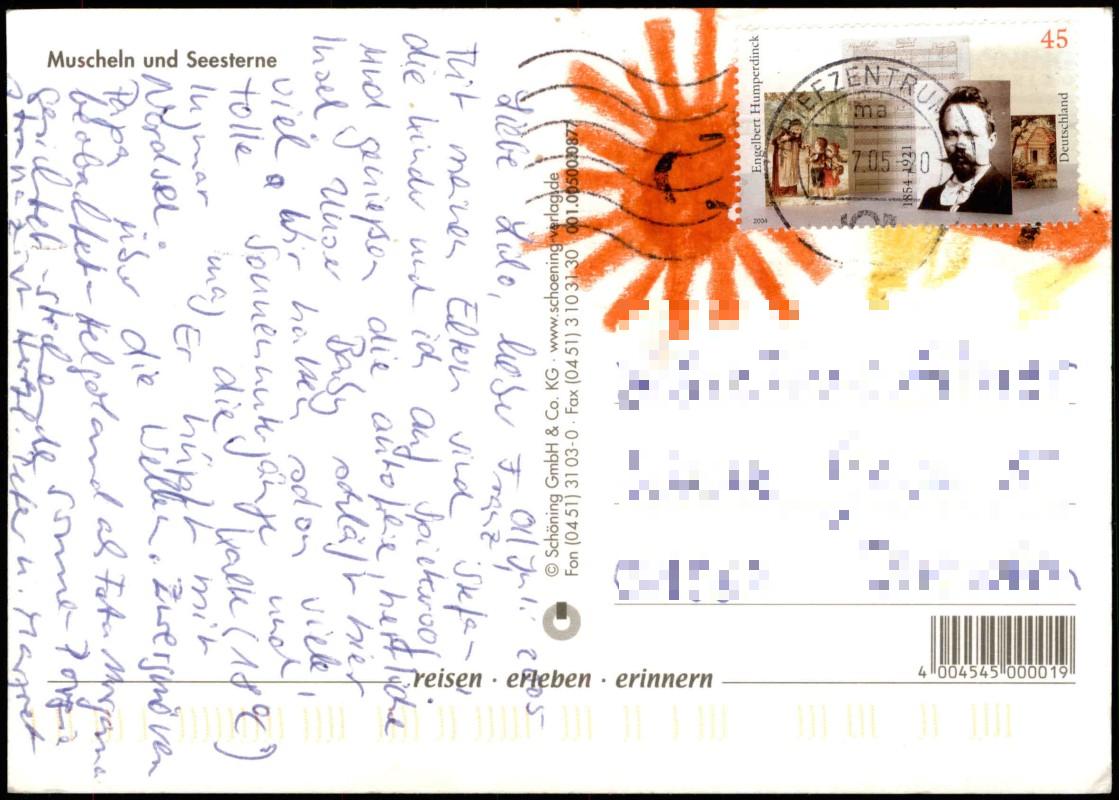 Muscheln und Seesterne
01. Juli 2005
Liebe Lilo, lieber Franz
Mit meinen Eltern sind Stefan
die Kinder und ich auf Spiekeroog
und genießen die autofreie herrliche
Insel. Unser Baby schläft hier
viel. Wir haben schon viele,
tolle Sonnenuntergänge und
Ingmar mag die kalte (18°C)
Nordsee. Er hüpft mit
Papa über die Wellen. Zwergmöwen
beobachtet - Helgoland als Fata Morgana
gesichtet - Sonne
Peter u. Margret
© Schöning GmbH & Co. KG · www.schoening-verlag.de
Fon (04 51) 3 10 3-0 · Fax (04 51) 3 10 31-30 001.005000877
Engelbert Humperdinck
1854-1921
45
Deutschland
2004
BRIEFZENTRUM
ma
7.05-20
reisen · erleben · erinnern
4 004545 000019